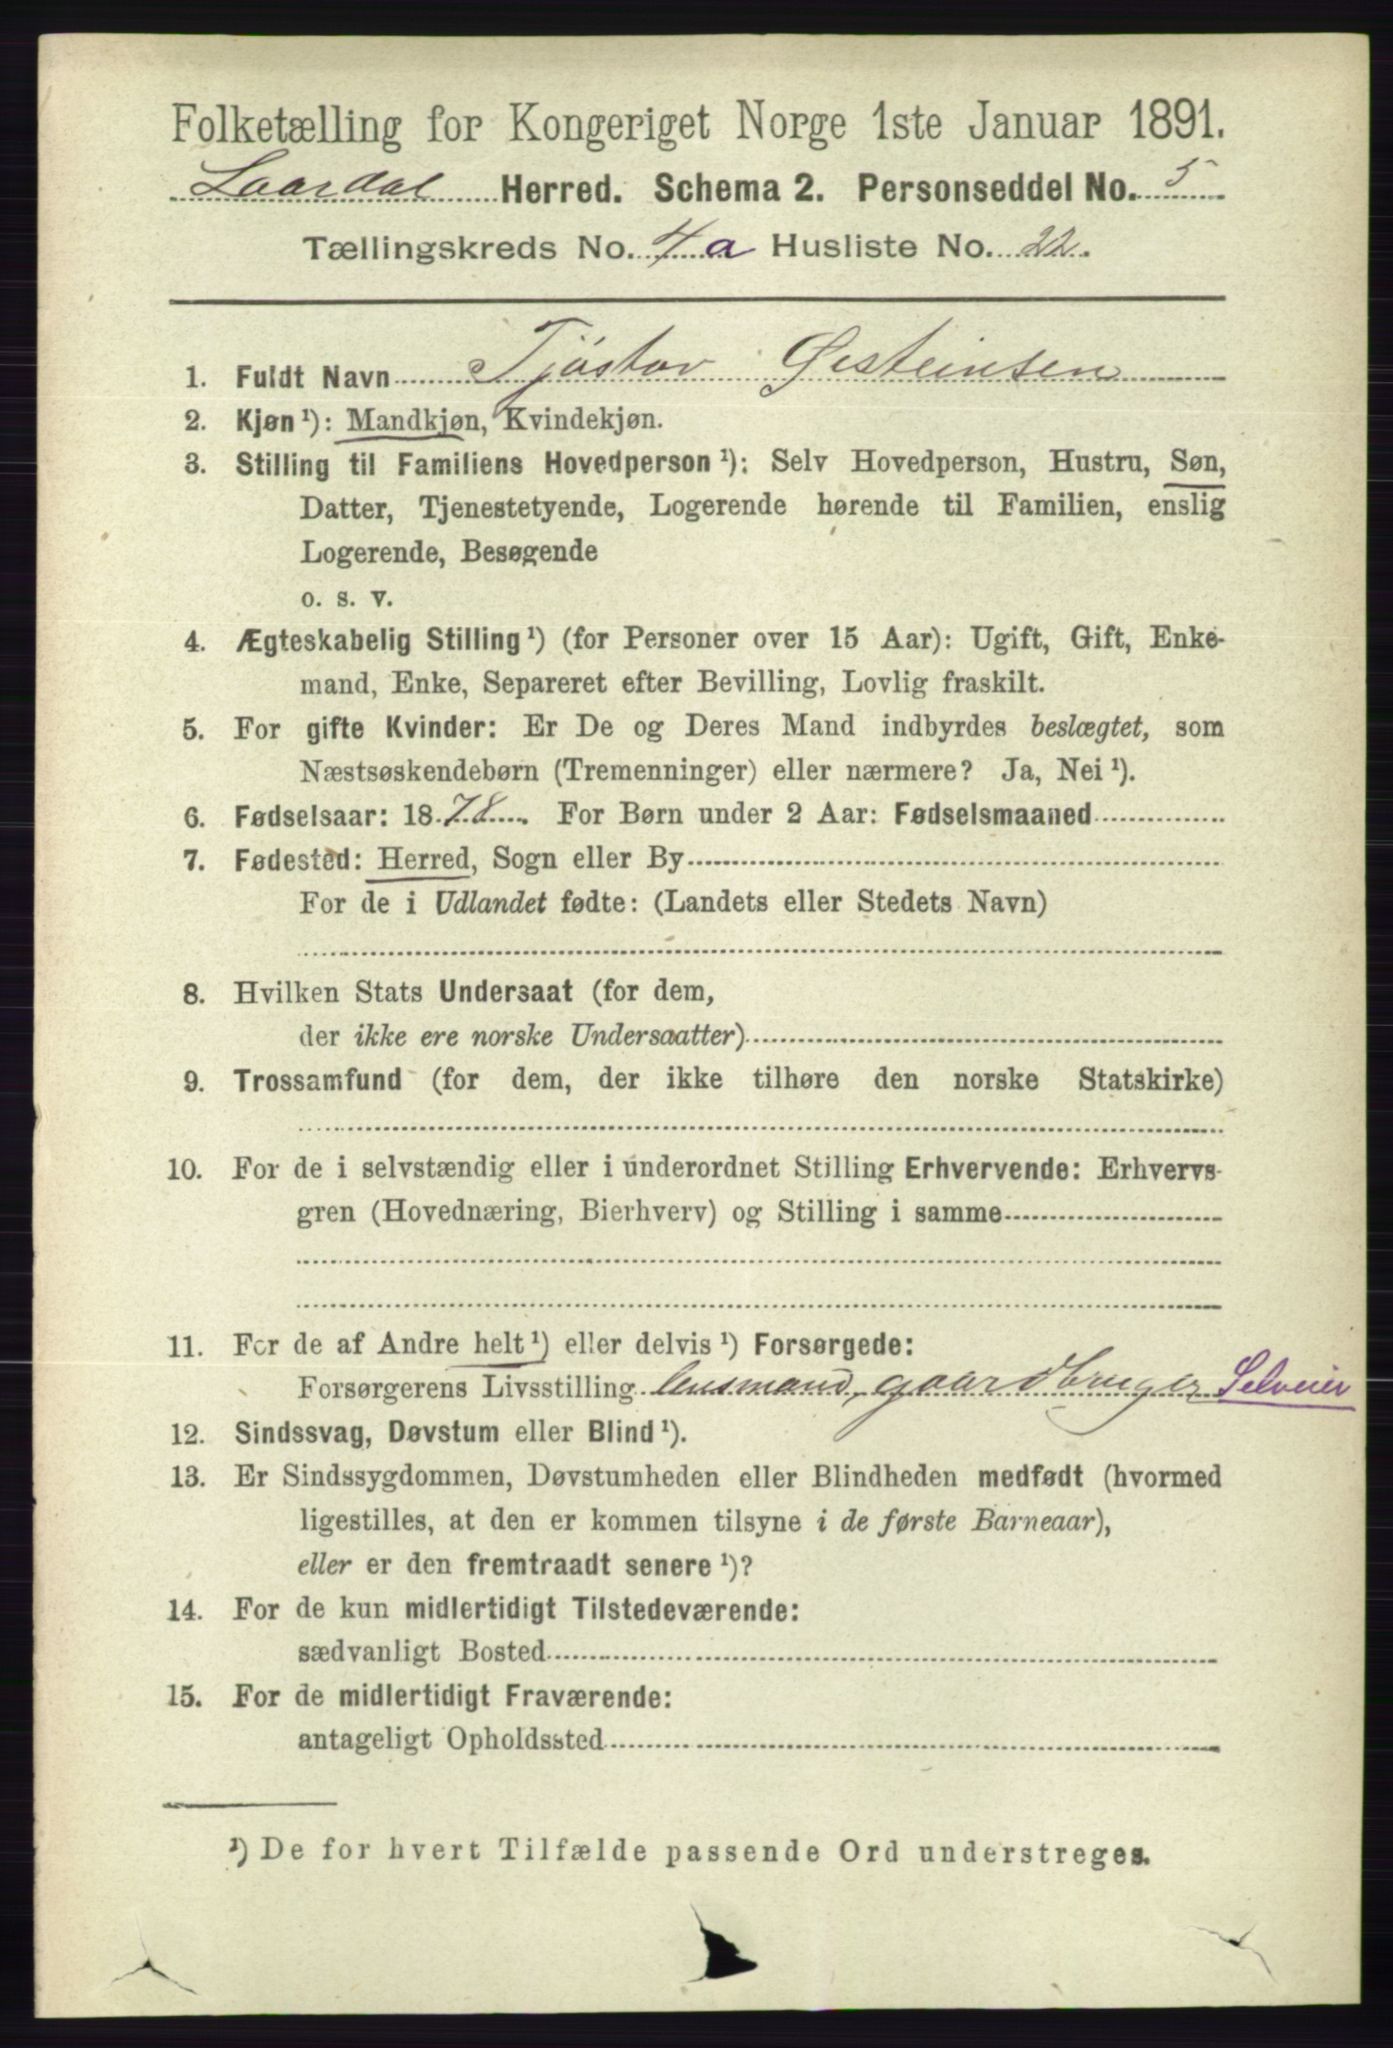 Folketælling for Kongeriget Norge 1ste Januar 1891.
Laardal Herred. Schema 2. Personseddel No. 5
Tællingskreds No. 4 a Husliste No. 22.
1. Fuldt Navn Tjøstov Østeinsen
2. Kjøn ¹): Mandkjøn, Kvindekjøn.
3. Stilling til Familiens Hovedperson ¹): Selv Hovedperson, Hustru, Søn,
Datter, Tjenestetyende, Logerende hørende til Familien, enslig
Logerende, Besøgende
o. s. v.
4. Ægteskabelig Stilling ¹) (for Personer over 15 Aar): Ugift, Gift, Enke-
mand, Enke, Separeret efter Bevilling, Lovlig fraskilt.
5. For gifte Kvinder: Er De og Deres Mand indbyrdes beslægtet, som
Næstsøskendebørn (Tremenninger) eller nærmere? Ja, Nei ¹).
6. Fødselsaar: 1878. For Børn under 2 Aar: Fødselsmaaned
7. Fødested: Herred, Sogn eller By
For de i Udlandet fødte: (Landets eller Stedets Navn)
8. Hvilken Stats Undersaat (for dem,
der ikke ere norske Undersaatter)
9. Trossamfund (for dem, der ikke tilhøre den norske Statskirke)
10. For de i selvstændig eller i underordnet Stilling Erhvervende: Erhvervs-
gren (Hovednæring, Bierhverv) og Stilling i samme
11. For de af Andre helt ¹) eller delvis ¹) Forsørgede:
Forsørgerens Livsstilling lensmand, gaardbruger Selveier
12. Sindssvag, Døvstum eller Blind ¹).
13. Er Sindssygdommen, Døvstumheden eller Blindheden medfødt (hvormed
ligestilles, at den er kommen tilsyne i de første Barneaar),
eller er den fremtraadt senere ¹)?
14. For de kun midlertidigt Tilstedeværende:
sædvanligt Bosted
15. For de midlertidigt Fraværende:
antageligt Opholdssted
¹) De for hvert Tilfælde passende Ord understreges.